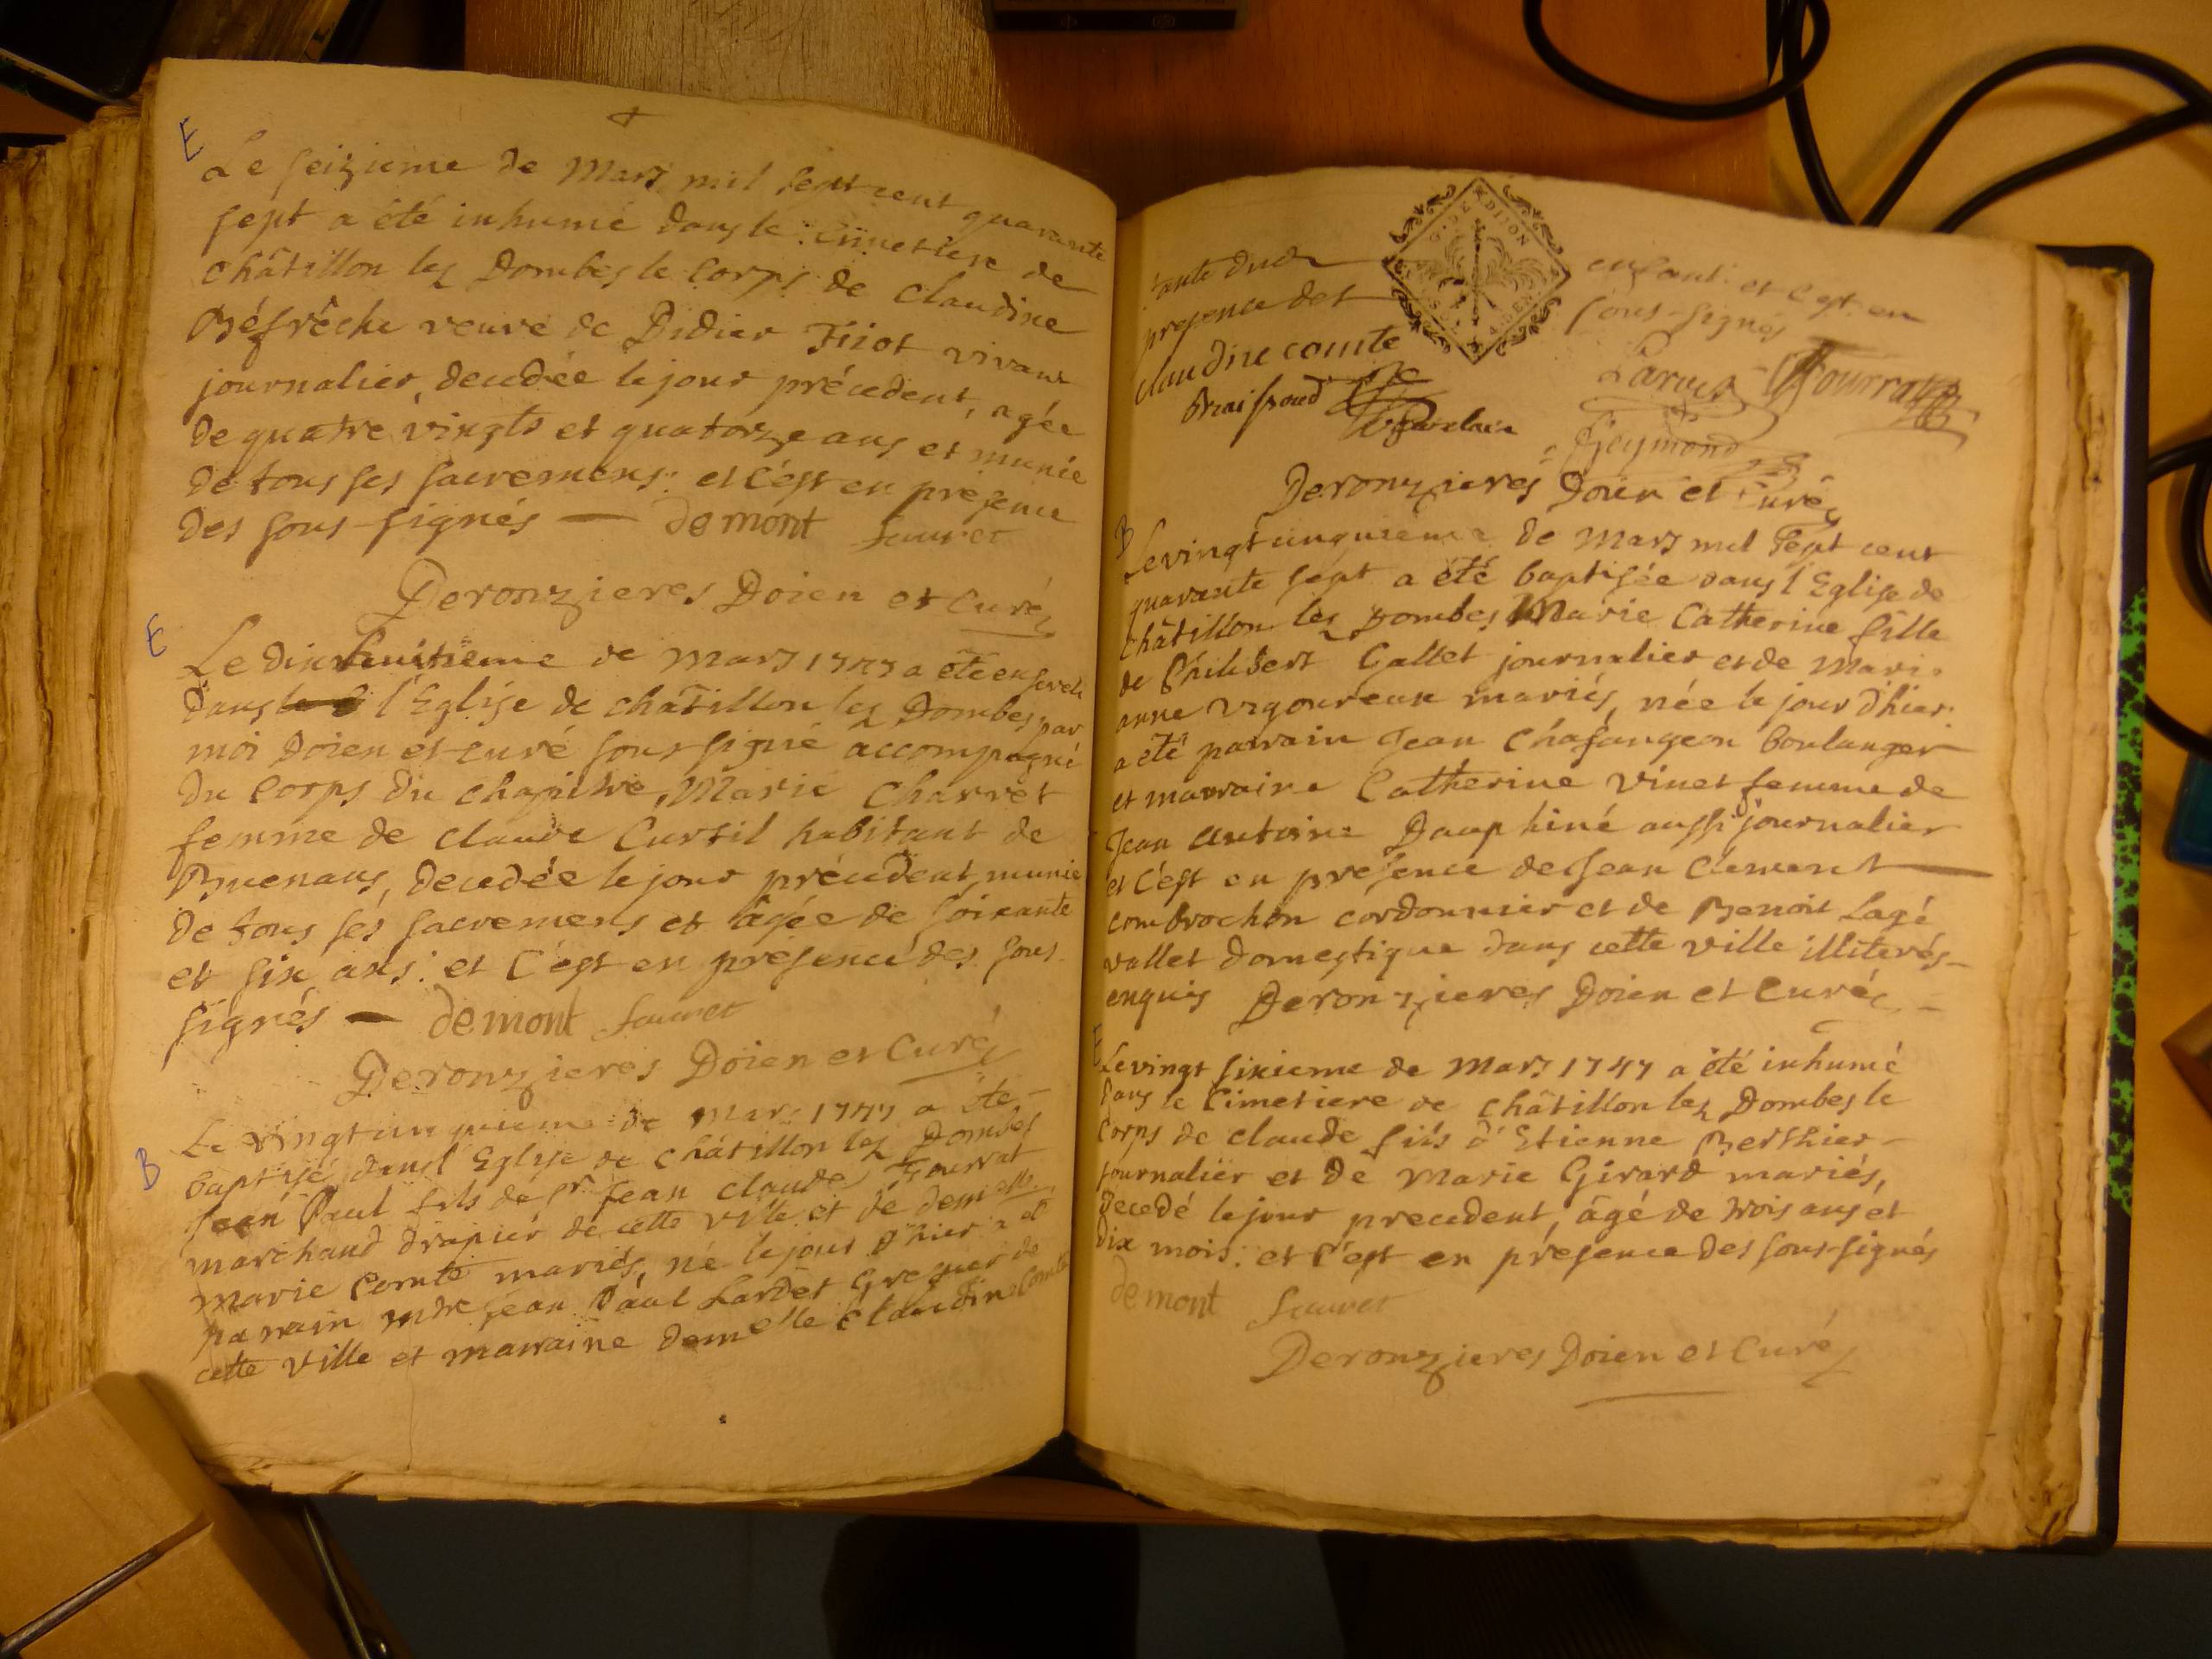 E
Le seizieme de Mars mil sept cent quarante
sept a été inhumé dans le Cimetiere de
Châtillon les Dombes le Corps de Claudine
veuve de Didier vivant
journalier, decedée le jour précedent, agée
de quatre vingts et quatorze ans et munie
de tous ses sacremens: et c'est en présence
des sous-signés — demont Sauret
Deronzieres Doien et Curé
E
Le dix huitieme de Mars 1747 a été enseveli
dans l'Eglise de châtillon les Dombes par
moi Doien et curé sous signé accompagné
du Corps du chapitre, Marie Charvet
femme de Claude Curtil habitant de
Buenans, decedée le jour précedent, munie
de tous ses sacremens et âgée de soixante
et six ans: et C'est en présence des sous
signés — demont Sauret
Deronzieres Doien et Curé
B
Le vingt cinquieme de Mars 1747 a été
baptisé dans l'Eglise de châtillon les Dombes
Jean Paul fils de Sr Jean Claude Fourrat
marchand drapier de cette ville et de demelle
Marie Comte mariés, né le jour d'hier: a été
parrain mtre Jean Paul Lardet Greffier de
cette ville et marraine demelle Claudine Comte
tante dud enfant: et c'est en
presence des sous-signés
G. DE DIJON
claudine comte
Fourrat
Braissoud
Geymond
Deronzieres Doien et Curé
B
Le vingt cinquieme de Mars mil sept cent
quarante sept a été baptisée dans l'Eglise de
châtillon les Dombes Marie Catherine fille
de Philibert Gallet journalier et de Marie
anne vigoureux mariés, née le jour d'hier:
a été parrain Jean Chasangeon boulanger
et marraine Catherine Vinet femme de
Jean Antoine Dauphiné aussi journalier
et C'est en présence de Jean Clement
combrochon cordonnier et de Benoit Lagé
vallet domestique dans cette ville illiterés
enquis Deronzieres Doien et Curé
E
Le vingt sixieme de Mars 1747 a été inhumé
dans le Cimetiere de châtillon les Dombes le
Corps de claude fils d'Etienne Berthier
journalier et de Marie Girard mariés,
decedé le jour precedent, âgé de trois ans et
dix mois: et C'est en présence des sous-signés
demont Sauret
Deronzieres Doien et Curé